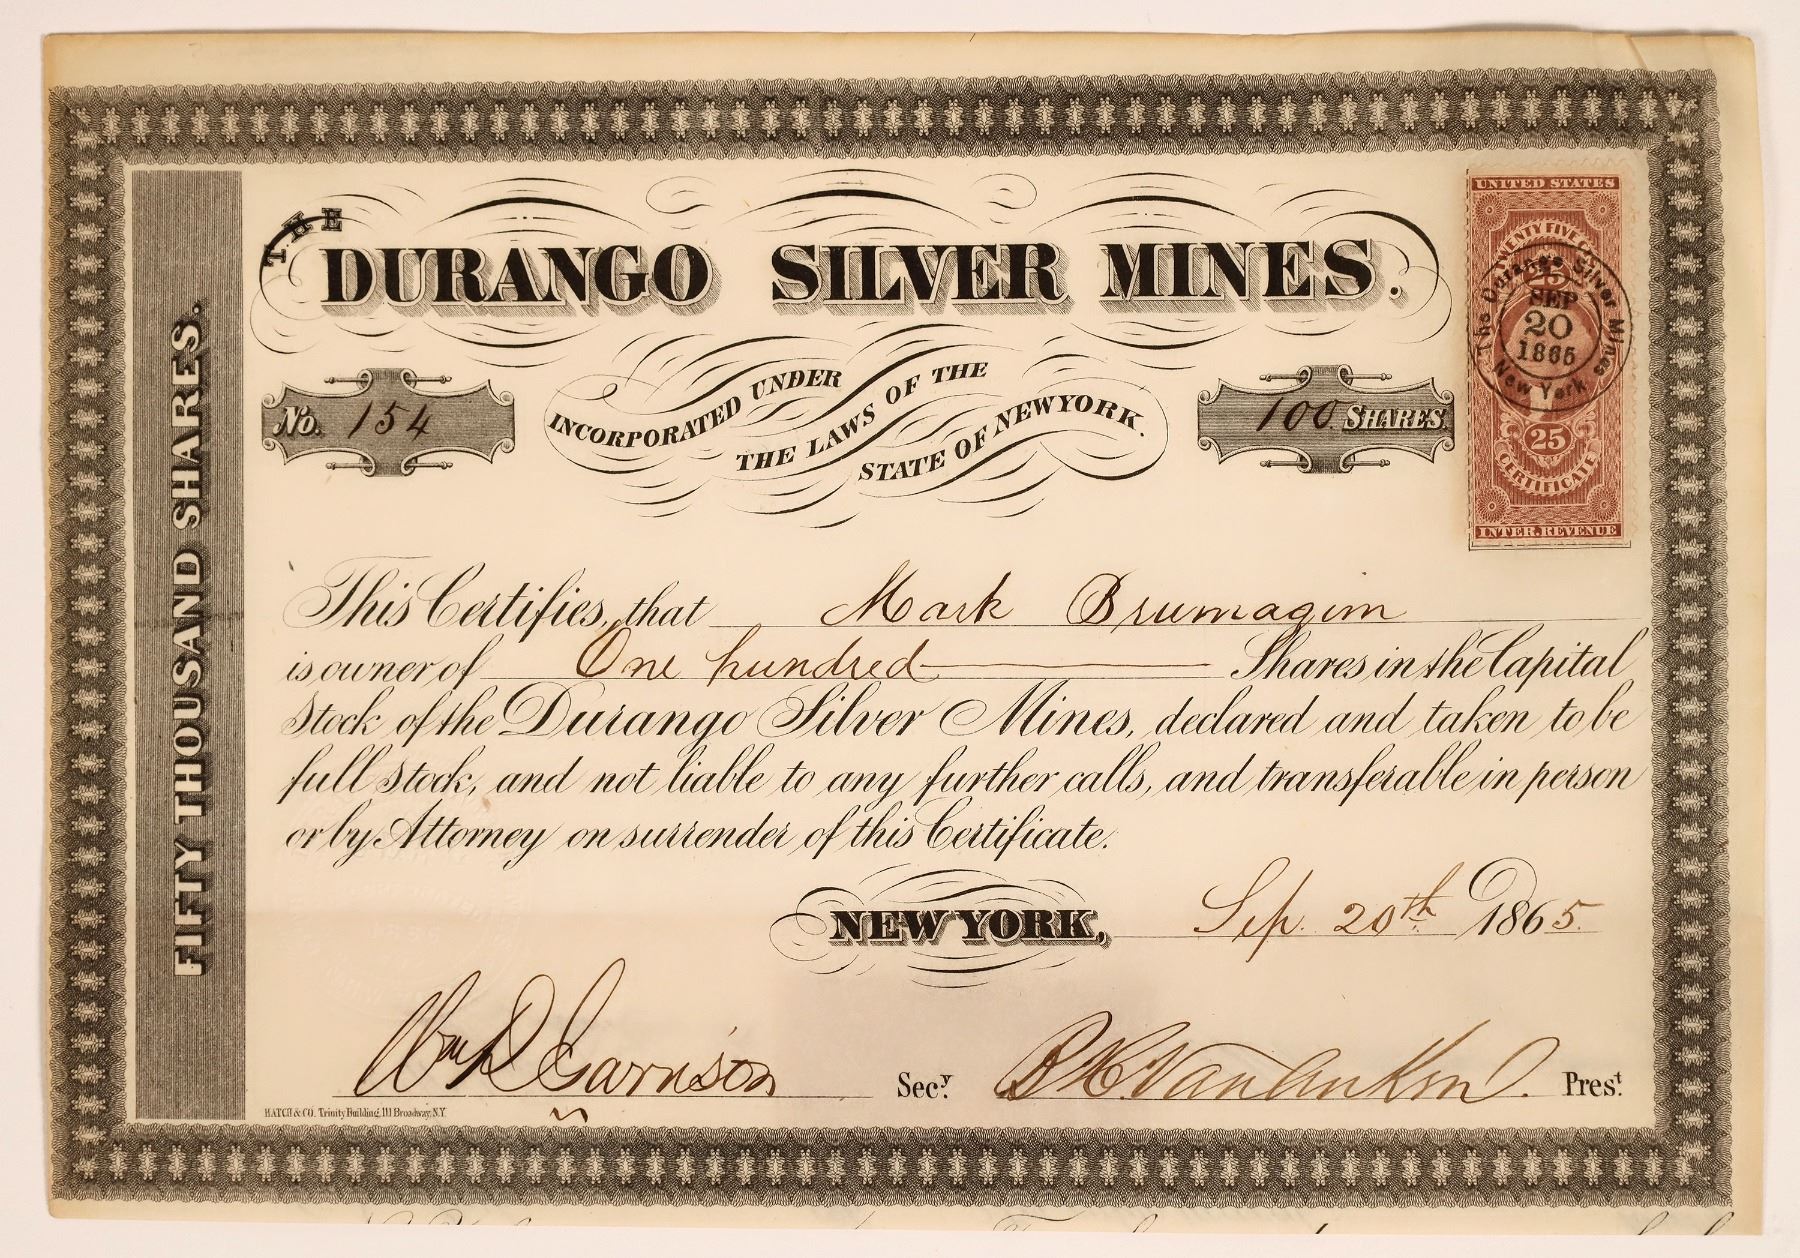 THE
DURANGO SILVER MINES.
No. 154
INCORPORATED UNDER
THE LAWS OF THE
STATE OF NEW YORK.
100 SHARES
UNITED STATES
TWENTY FIVE
25
The Durango Silver Mines
SEP
20
1865
New York
25
CERTIFICATE
INTER. REVENUE
FIFTY THOUSAND SHARES.
This Certifies, that Mark Brumagim
is owner of One hundred Shares in the Capital
Stock of the Durango Silver Mines, declared and taken to be
full stock, and not liable to any further calls, and transferable in person
or by Attorney on surrender of this Certificate.
NEW YORK, Sep. 20th 1865.
Wm D Garrison Secy. Pres.t
HATCH & CO. Trinity Building, 111 Broadway, N.Y.